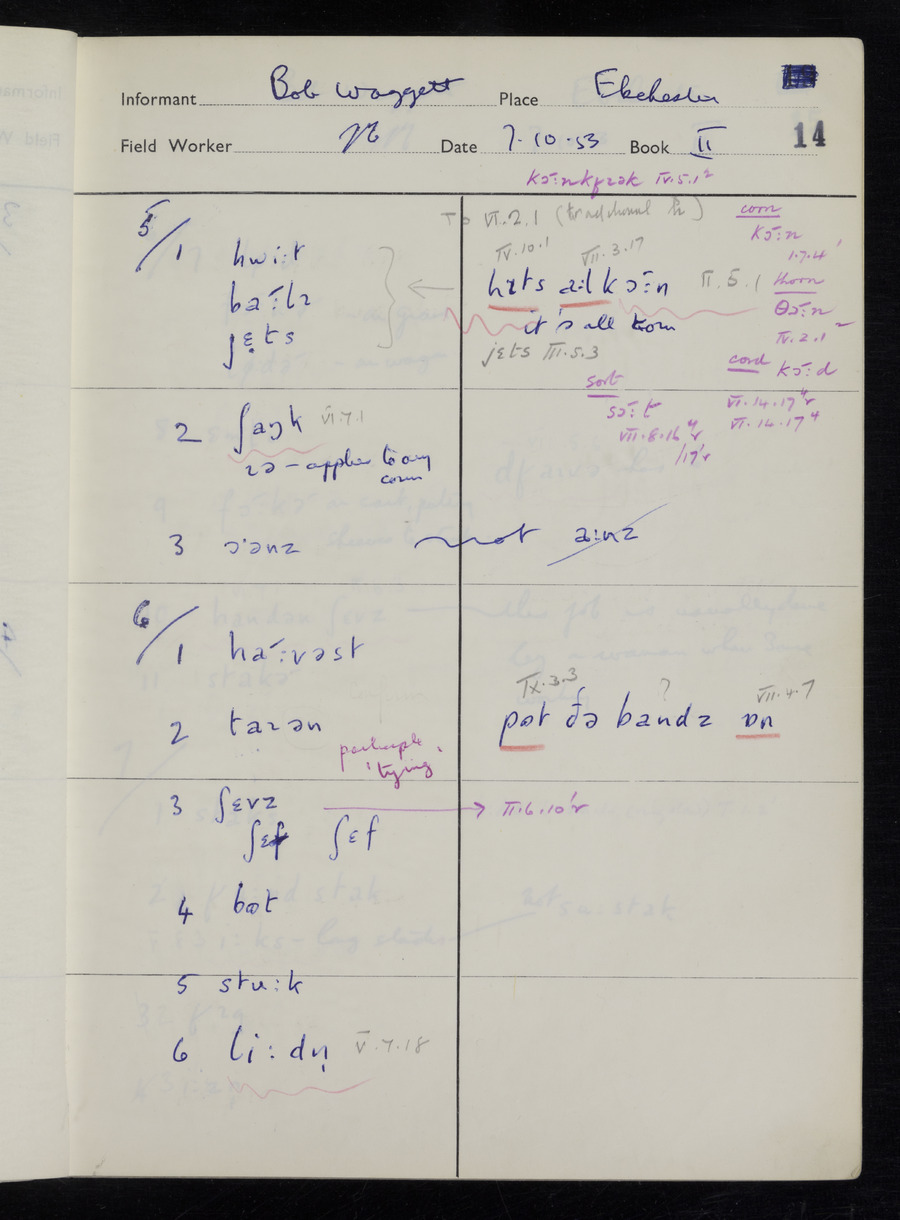 Informant Bob Waggett Place Ebchester
Field Worker Date 7.10.53 Book II 14
kɔ:nkɹɛk IV.5.1²
5/1 hwi:t
ba:lɪ
jɛ̣ts
TO VI.2.1 (traditional h)
IV.10.1 VII.3.17
hɪts a:l kɔ:n II.5.1
it's all corn
jɛts III.5.3
corn
kɔ:n
1.7.4'
thorn
θɔ:n
IV.2.1²
cord kɔ:d
VI.14.17⁴r
VI.14.17⁴
sort
sɔ:t
VII.8.16⁴r
/17'r
2 ʃaŋk VI.7.1
ɪə – applies to any
corn
3 ɔ'ənz not a:nz
6/1 ha:vəst
2 taɪən
IX.3.3 ? VII.4.7
pɵt ðə bandz ɒn
participle
'tying
3 ʃɛvz II.6.10'r
ʃɛf ʃɛf
4 bɵt
5 stu:k
6 li:dn̩ V.7.18